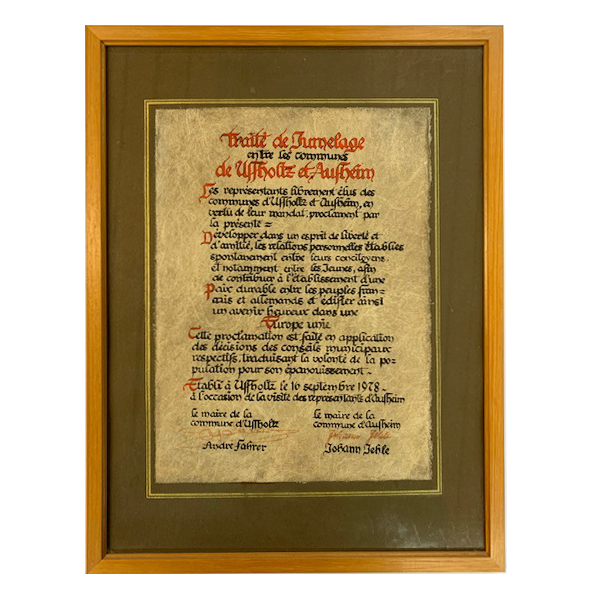 Traité de Jumelage
entre les communes
de Uffholtz et Ausheim
Les représentants librement élus des
communes d'Uffholtz et Ausheim, en
vertu de leur mandat, proclament par
la présente =
Développer dans un esprit de liberté et
d'amitié, les relations personnelles établies
spontanément entre leurs concitoyens.
et notamment entre les Jeunes, afin
de contribuer à l'établissement d'une
Paix durable entre les peuples fran=
çais et allemands et édifier ainsi
un avenir heureux dans une
Europe unie
Cette proclamation est faite en application
des décisions des conseils municipaux
respectifs, traduisant la volonté de la po=
pulation pour son épanouissement -
Etabli à Uffholtz le 16 septembre 1978 -
à l'occasion de la visite des représentants d'Ausheim
le maire de la
commune d'Uffholtz
le maire de la
commune d'Ausheim
André Fahrer
Johann Jehle